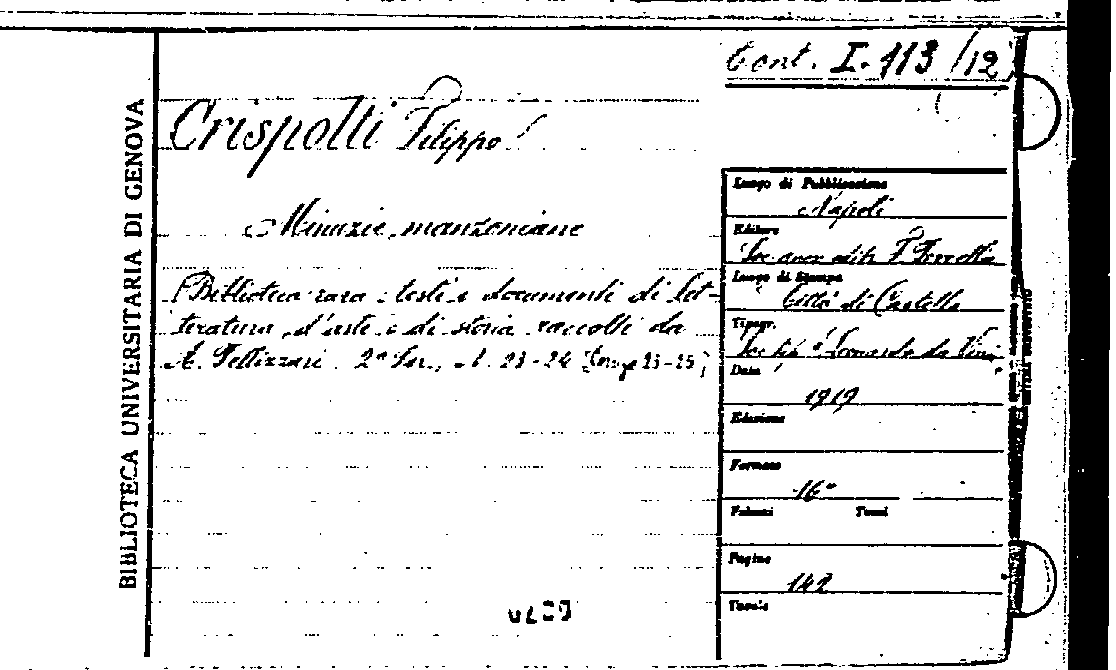 Cont. I. 113 /12
Crispolti Filippo
Minuzie manzoniane
(Biblioteca rara: testi e documenti di let-
teratura, d'arte e di storia raccolti da
A. Pellizzari. 2ª Ser., 23-24
BIBLIOTECA UNIVERSITARIA DI GENOVA
Luogo di Pubblicazione
Napoli
Editore
Soc. anon. edit. F. Perrella
Luogo di Stampa
Città di Castello
Tipogr.
Soc. tip. Leonardo da Vinci
Data
1919
Edizione
Formato
16°
Volumi Tomi
Pagine
142
Tavole